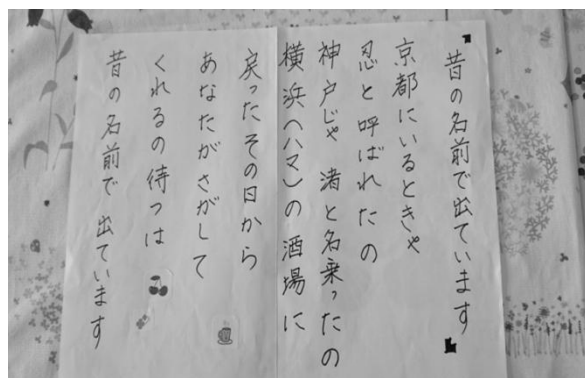 昔の名前で出ています
京都にいるときゃ
忍と呼ばれたの
神戸じゃ 渚と名乗ったの
横浜(ハマ)の酒場に
戻ったその日から
あなたがさがして
くれるの待つは
昔の名前で出ています